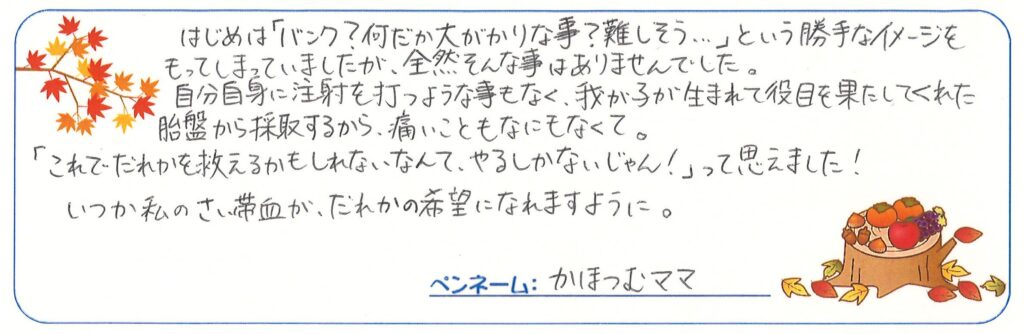 はじめは「バンク？何だか大がかりな事？難しそう…」という勝手なイメージを
もってしまっていましたが、全然そんな事はありませんでした。
自分自身に注射を打つような事もなく、我が子が生まれて役目を果たしてくれた
胎盤から採取するから、痛いこともなにもなくて。
「これでだれかを救えるかもしれないなんて、やるしかないじゃん！」って思えました！
いつか私のさい帯血が、だれかの希望になれますように。
ペンネーム：かほつむママ